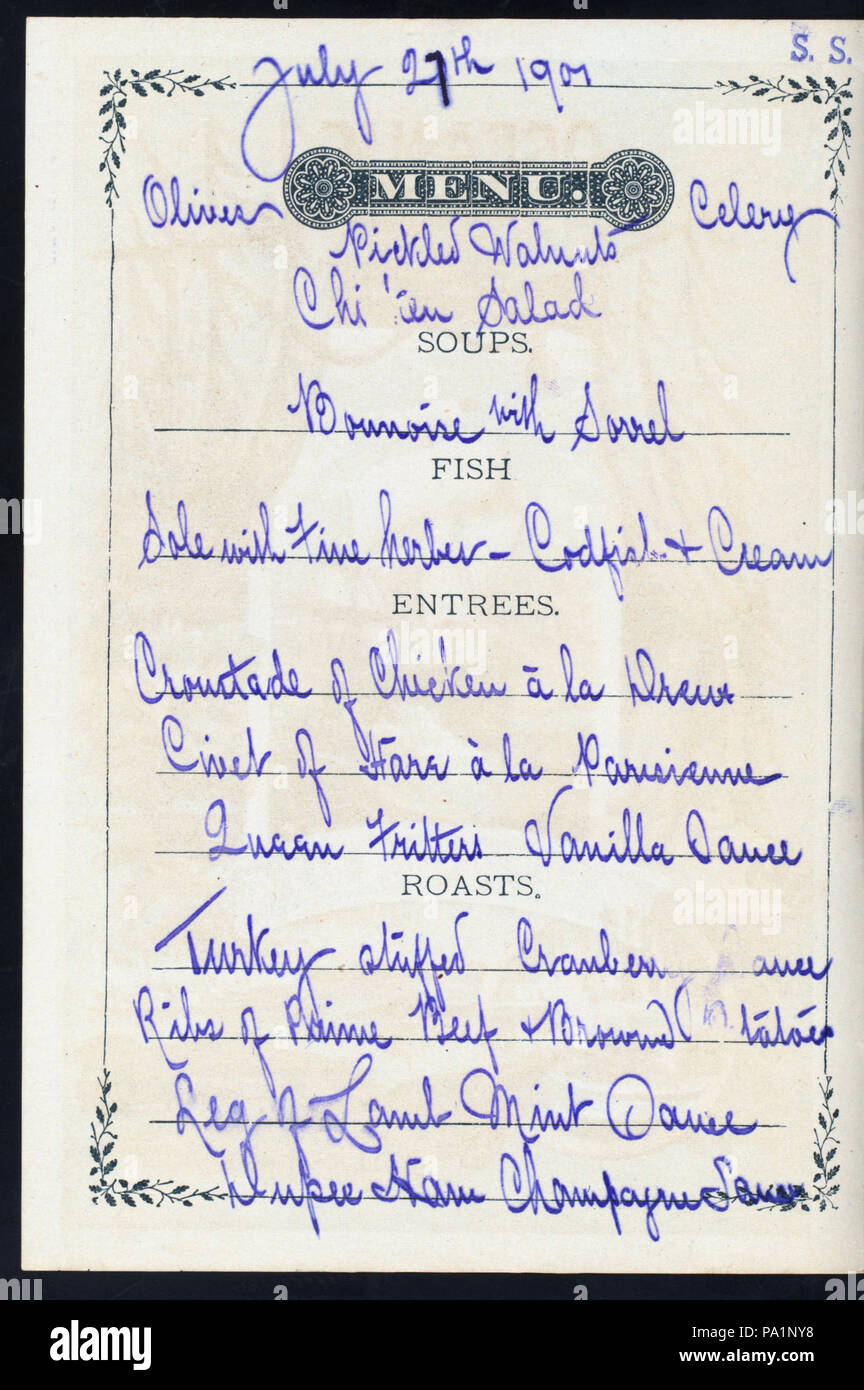 July 27th 1901
S. S.
MENU.
Olives Celery
Pickled Walnuts
Salad
SOUPS.
with Sorrel
FISH
Sole with Fine herbes - Codfish + Cream
ENTREES.
Croustade of Chicken à la Dreux
Civet of Hare à la Parisienne
Queen Fritters Vanilla Sauce
ROASTS.
Turkey stuffed Cranberry Sauce
Ribs of Prime Beef + Brown
Leg of Lamb Mint Sauce
Dupee Ham Champagne Sauce
alamy
Image ID: PA1NY8
www.alamy.com